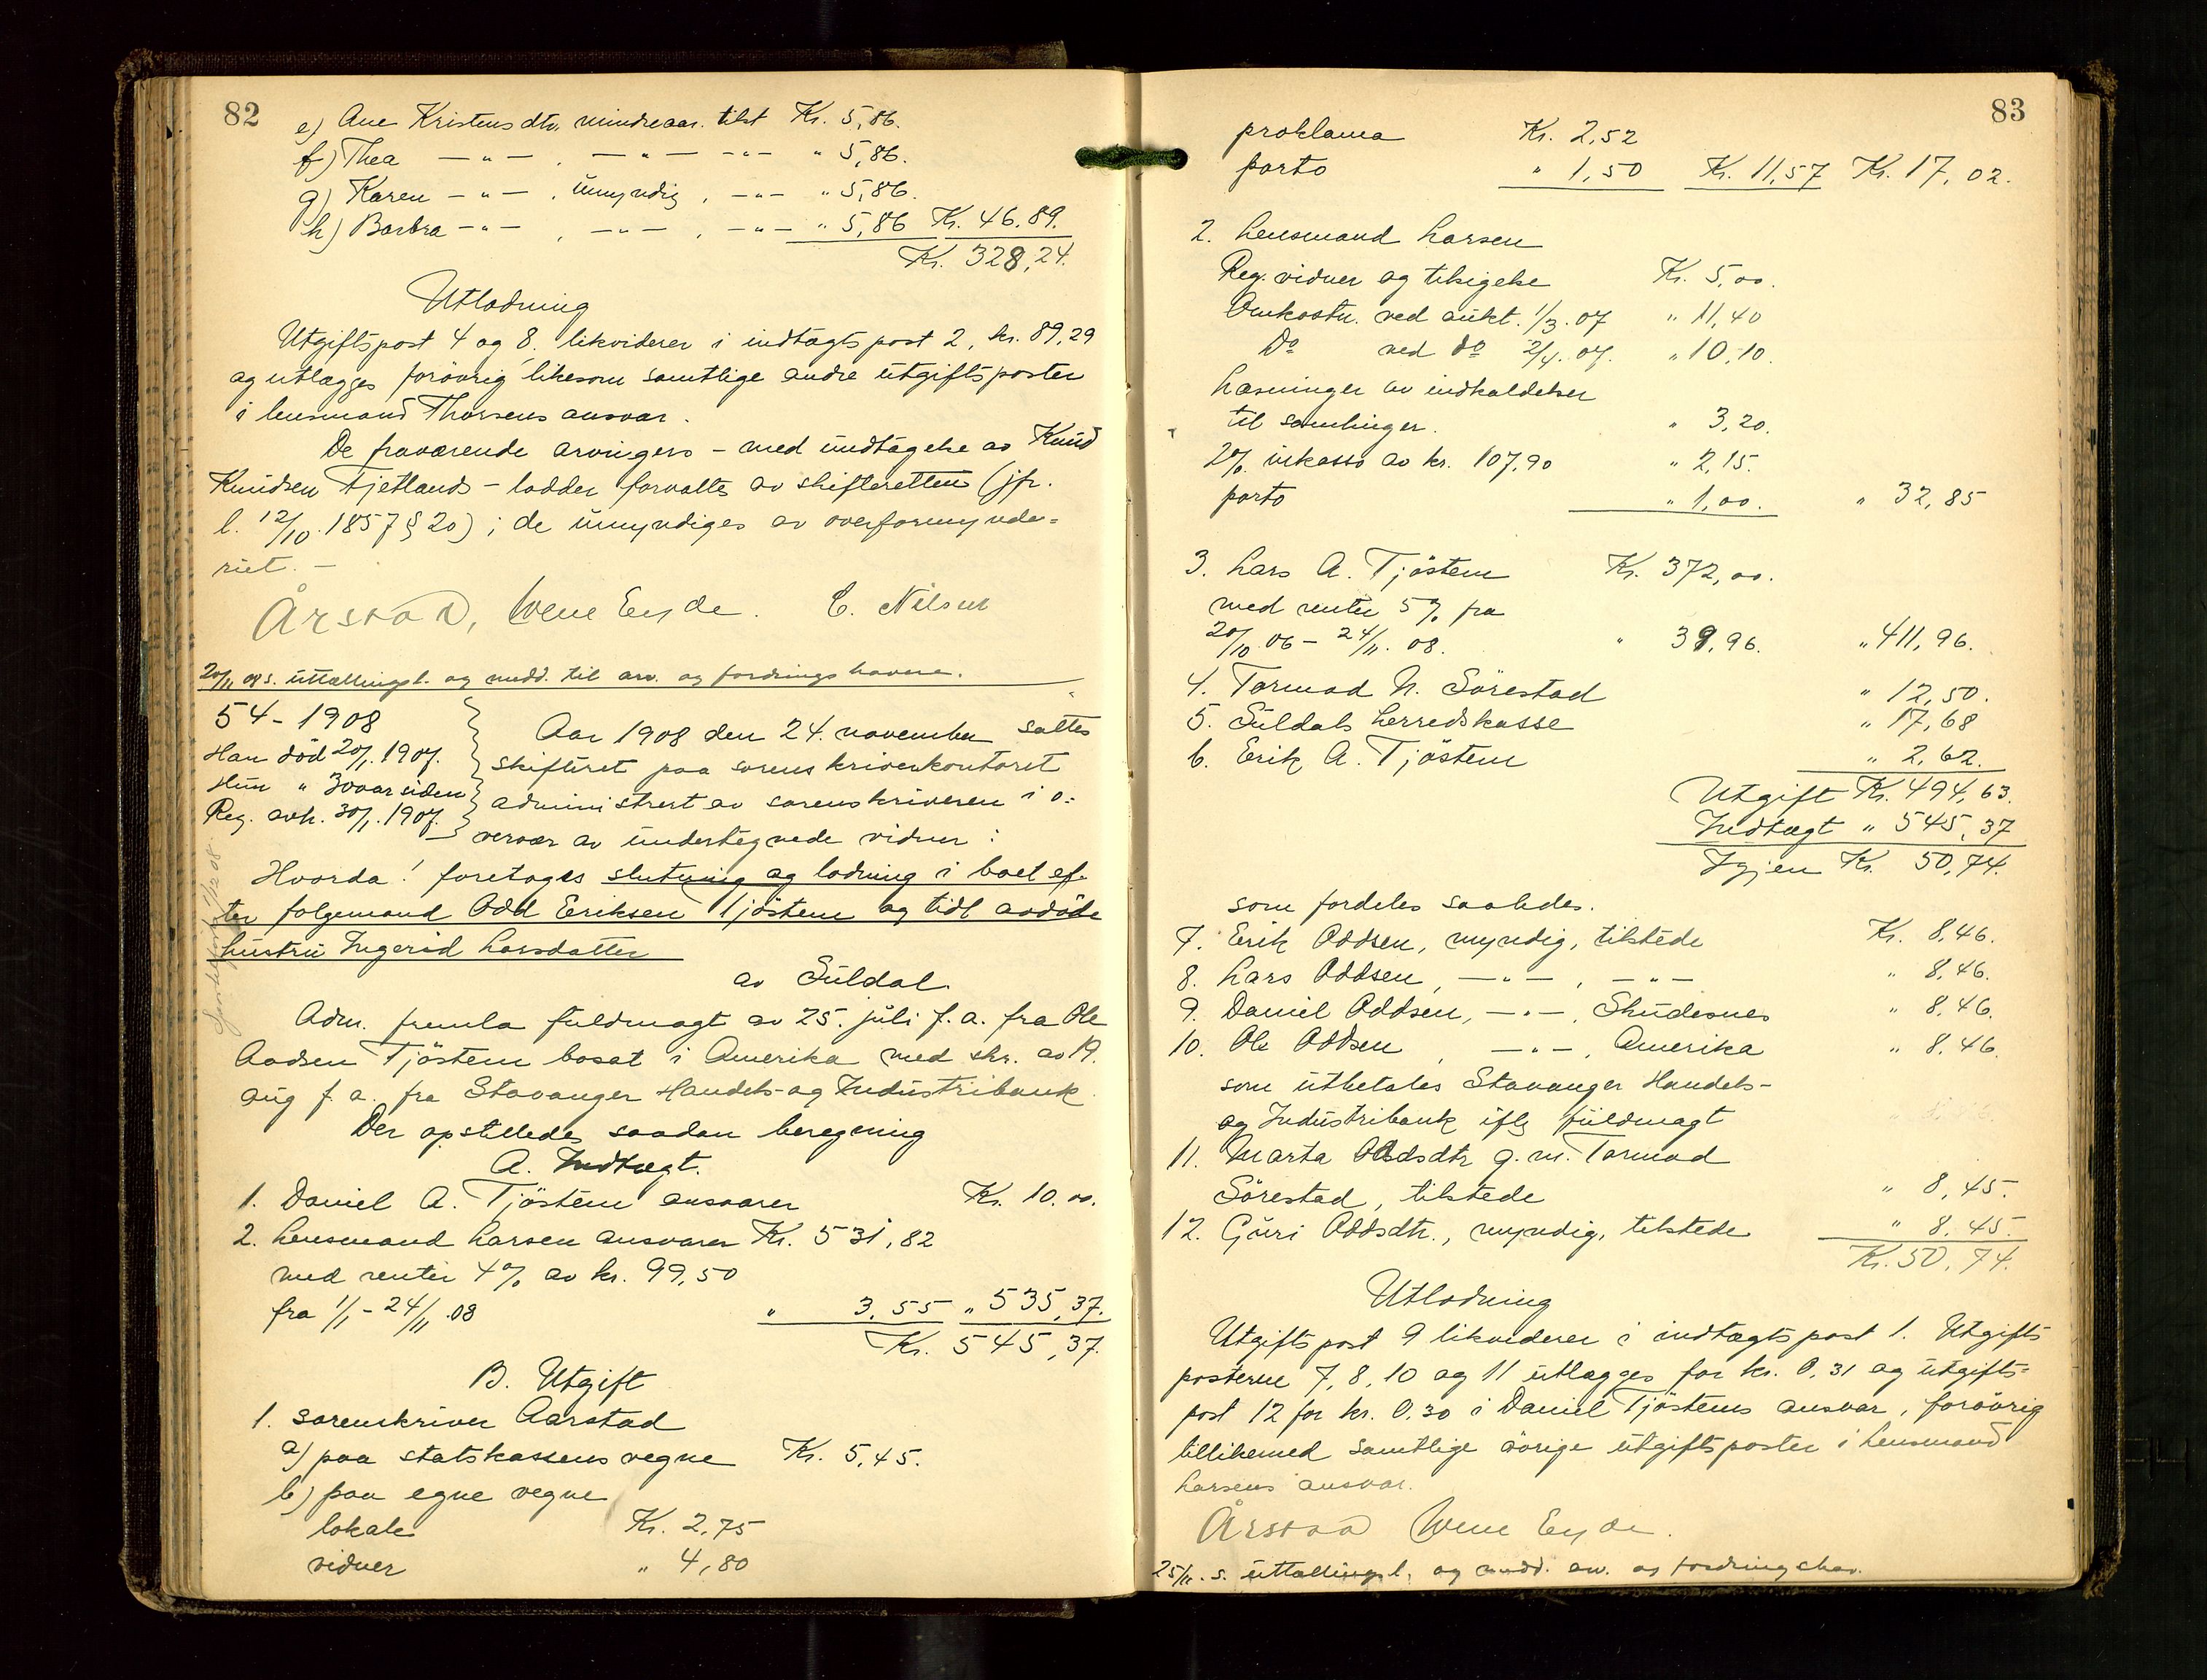 82
e) Ane Kristensdtr. mindreaar. tilst Kr. 5,86.
f) Thea — " — . — " — — " — " 5,86.
g) Karen — " — . umyndig , — " — " 5,86.
h) Barbra — " — , — " — , — " — " 5,86 Kr. 46.89.
Kr. 328,24.
Utlodning
Utgiftspost 4 og 8. likviderer i indtægtspost 2, kr. 89,29
og utlægges forøvrig likesom samtlige andre utgiftsposter
i lensmand Thorsens ansvar.
De fraværende arvingers – med undtagelse av Knud
Knudsen Fjetlands – lodder forvaltes av skifteretten (jfr.
l. 12/10. 1857 § 20) ; de umyndiges av overformynde=
riet. –
Årstad, Wene Eeyde. C. Nilsen
20/11 08 s. uttællingsl. og medd. til arv. og fordringshavere.
54 - 1908
Han död 20/1. 1907.
Hun " 30 aar siden
Reg. avh. 30/1. 1907.
Aar 1908 den 24. november sattes
skifteret paa sorenskriverkontoret
administrert av sorenskriveren i o=
vervær av undertegnede vidner :
Hvorda! foretages slutning og lodning i boet ef-
ter folgemand Odd Eriksen Tjöstem og tidl avdöde
hustru Ingerid Larsdatter
av Suldal.
Adm. fremla fuldmagt av 25. juli f. a. fra Ole
Aadsen Tjöstem bosat i Amerika med skr. av 19.
aug f. a. fra Stavanger Handels- og Industribank.
Der opstilledes saadan beregning
A. Indtægt.
1. Daniel A. Tjöstem ansvarer Kr. 10.00.
2. Lensmand Larsen ansvarer Kr. 531,82
med renter 4% av kr. 99,50
fra 1/1 - 24/11 .08 " 3,55 " 535,37.
Kr. 545,37.
B. Utgift
1. sorenskriver Aarstad
a) paa statskassens vegne Kr. 5,45.
b) paa egne vegne
lokale Kr. 2,75
vidner " 4,80
83
proklama Kr. 2,52
porto " 1,50 Kr. 11,57 Kr. 17,02.
2. Lensmand Larsen
Reg. vidner og tilsigelse Kr. 5,00.
Omkostn. ved aukt. 1/3. 07 " 11,40
Do ved do 2/4. 07. " 10,10.
Læsninger av indkaldelser
til samlinger. " 3,20.
2% inkasso av kr. 107,90 " 2,15.
porto " 1,00. " 32,85
3. Lars A. Tjöstem Kr. 372,00.
med renter 5% fra
20/10. 06 – 24/11. 08. " 39,96. " 411,96.
4. Tormod N. Sörestad " 12,50.
5. Suldals herredskasse " 17,68
6. Erik A. Tjöstem " 2,62.
Utgift Kr. 494,63.
Indtægt " 545,37
Igjen Kr. 50,74.
som fordeles saaledes.
7. Erik Oddsen, myndig, tilstede Kr. 8,46.
8. Lars Oddsen, — " — , — " — " 8,46.
9. Daniel Oddsen, — " — , Skudesnes " 8,46.
10. Ole Oddsen , — " — , Amerika " 8,46.
som utbetales Stavanger Handels-
og Industribank iflg fuldmagt
11. Marta Oddsdtr g. m. Tormod
Sörestad, tilstede " 8,45.
12. Guri Oddsdtr., myndig, tilstede " 8,45.
Kr. 50,74.
Utlodning
Utgiftspost 9 likviderer i indtægtspost 1. Utgifts
posterne 7, 8, 10 og 11 utlægges for kr. 0,31 og utgifts=
post 12 for kr. 0.30 i Daniel Tjöstems ansvar, forövrig
tillikemed samtlige övrige utgiftsposter i lensmand
Larsens ansvar.
Årstad Wene Eeyde.
25/11. s. uttællingsl. og medd. arv. og fordringshav.